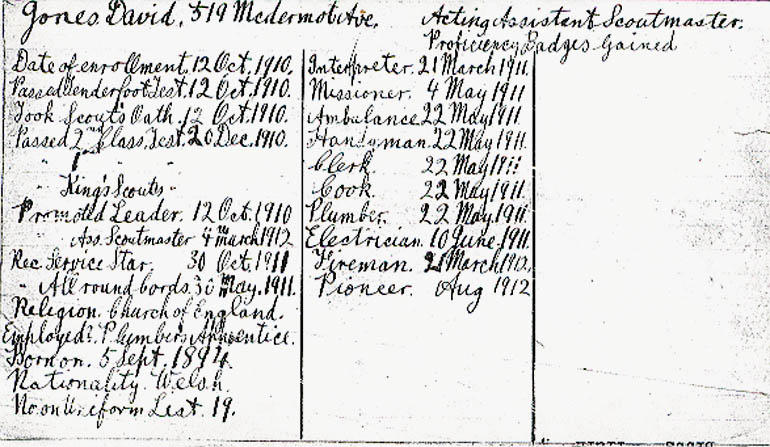 Jones David, 519 Mcdermot Ave. Acting Assistant Scoutmaster.
Proficiency Badges Gained
Date of enrollment. 12 Oct. 1910.
Passed Tenderfoot Test. 12 Oct. 1910.
Took Scout's Oath. 12 Oct. 1910.
Passed 2nd Class Test. 20 Dec. 1910.
" 1 "
" King's Scouts "
Promoted Leader. 12 Oct. 1910
" Ass. Scoutmaster 4th March 1912
Rec Service Star. 30 Oct. 1911
" All round bords. 30 May. 1911.
Religion. Church of England.
Employed?. Plumber's Apprentice.
Born on. 5 Sept. 1894.
Nationality. Welsh.
No. on Uniform List. 19.
Interpreter. 21 March 1911.
Missioner. 4 May 1911
Ambulance 22 May 1911
Handyman. 22 May 1911.
Clerk. 22 May 1911
Cook. 22 May 1911.
Plumber. 22 May 1911.
Electrician. 10 June. 1911.
Fireman. 21 March 1912.
Pioneer. Aug 1912